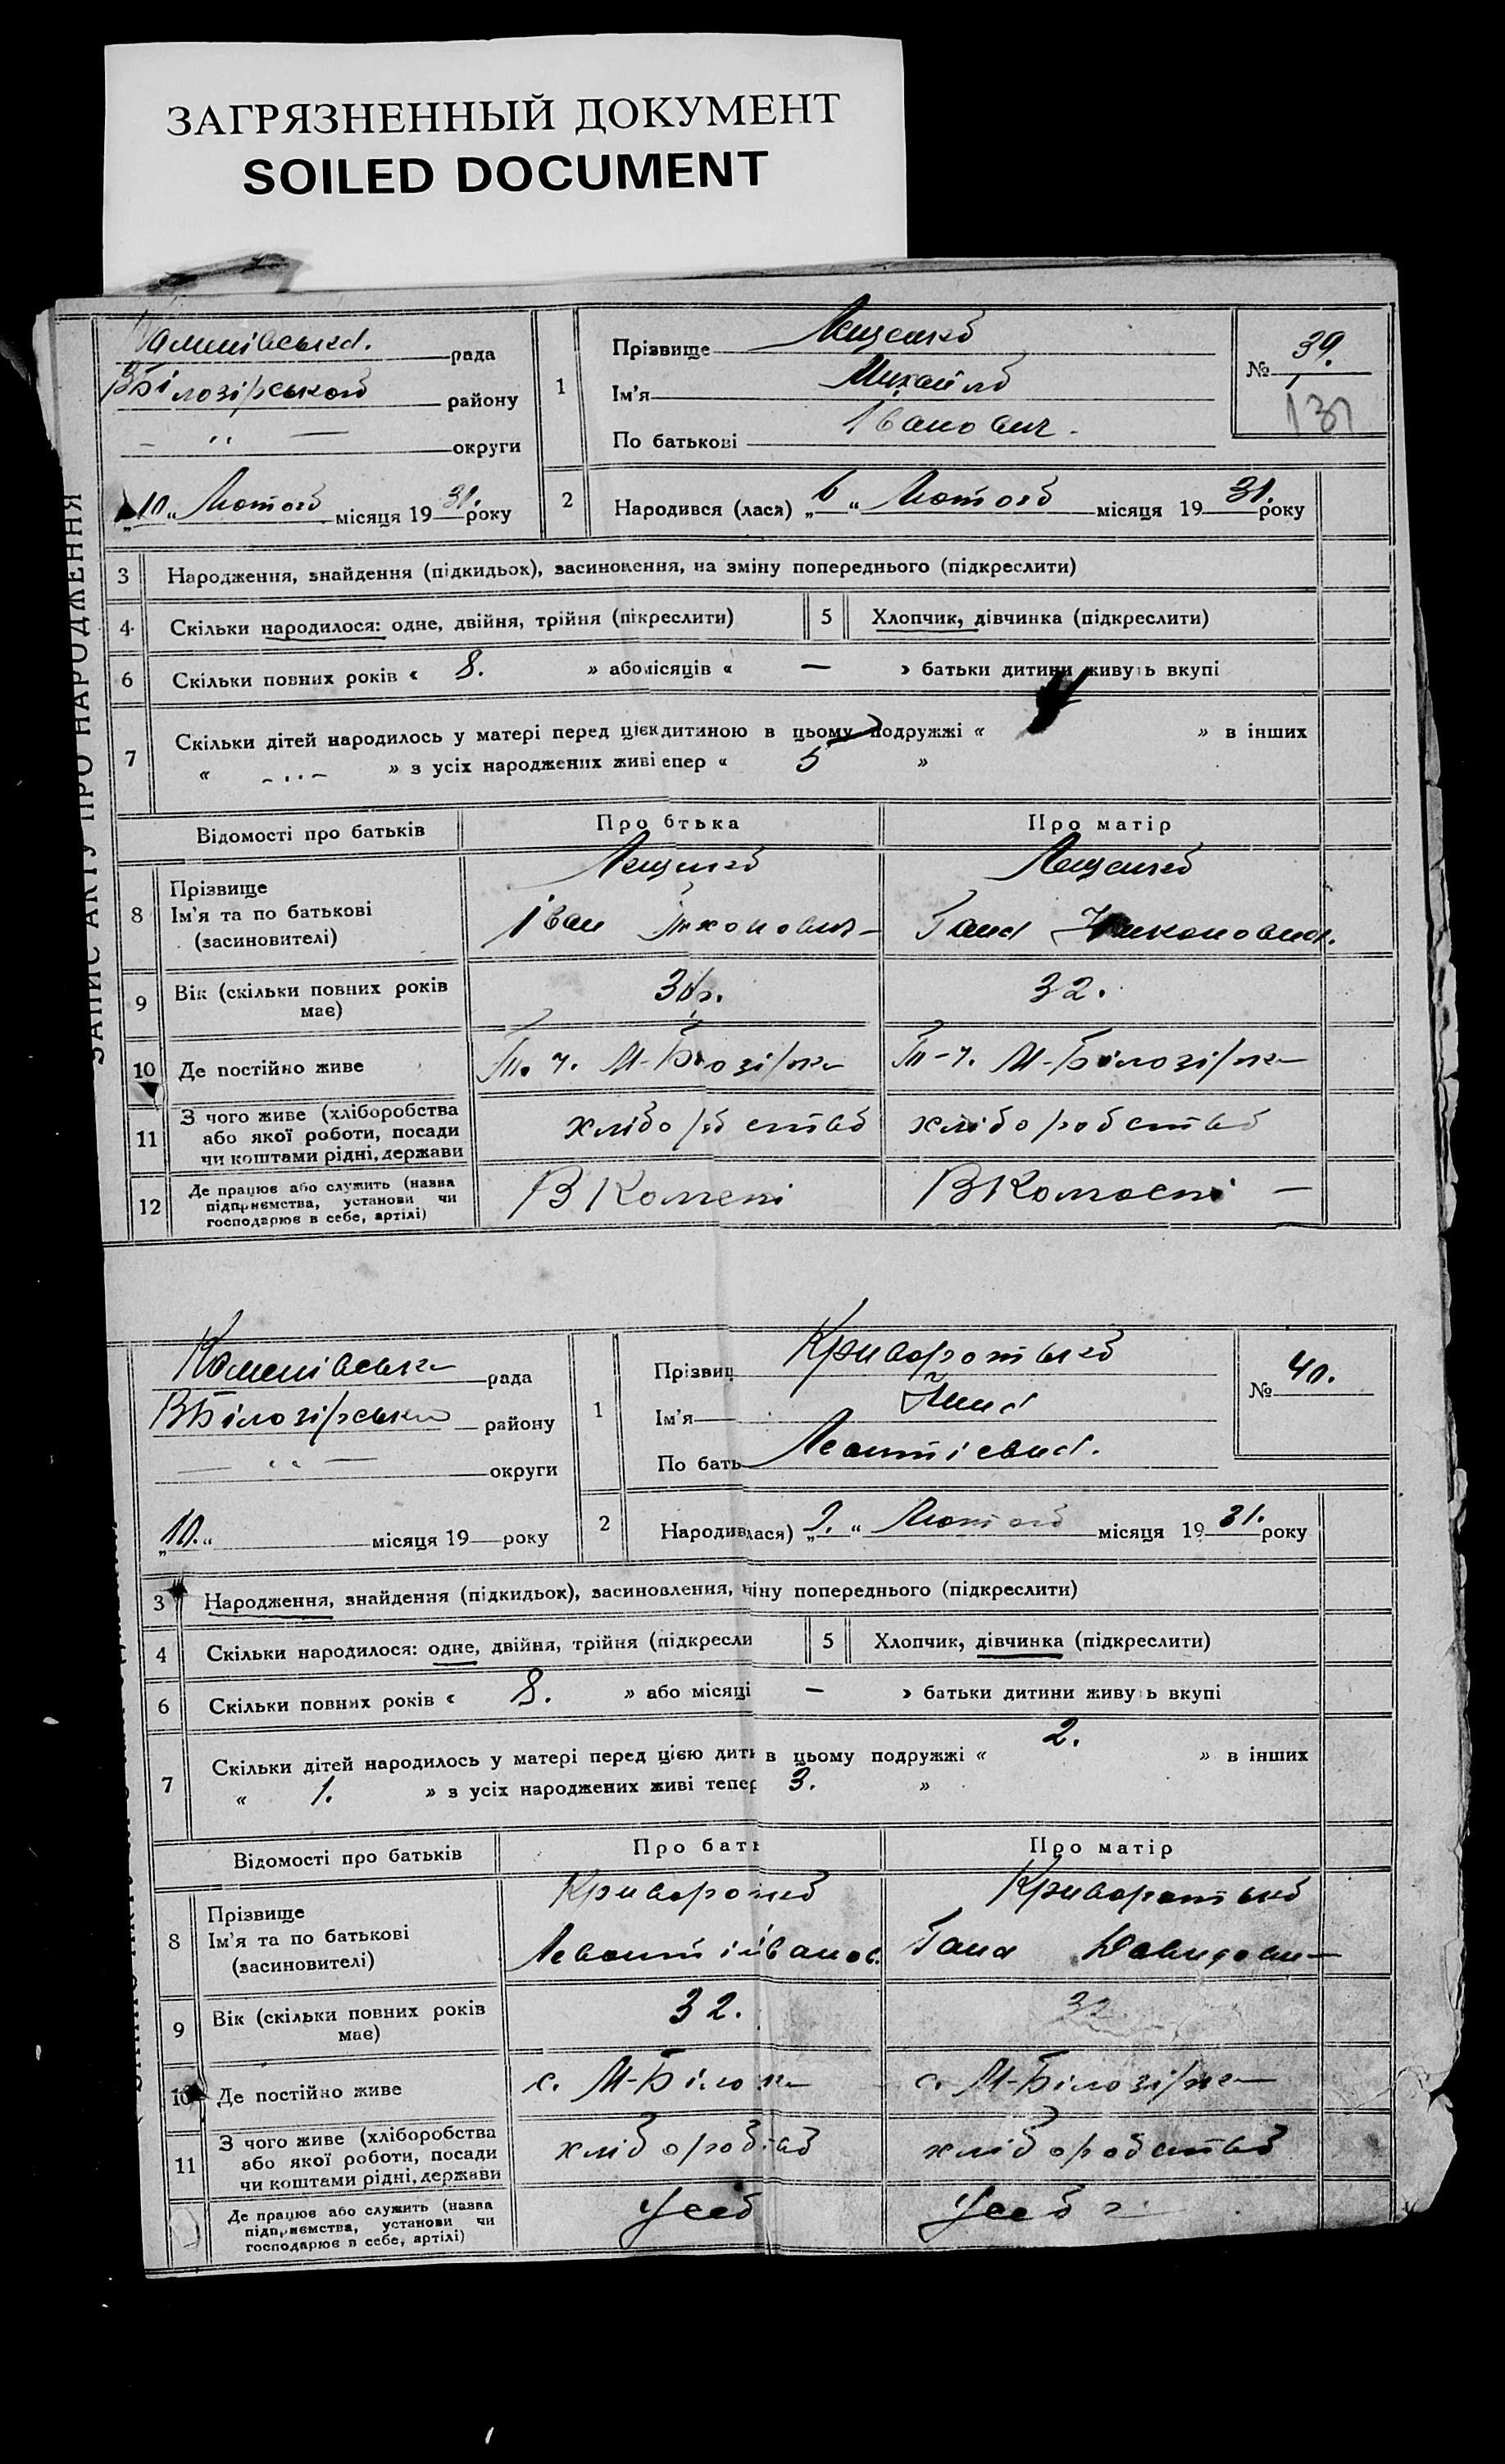 ЗАГРЯЗНЕННЫЙ ДОКУМЕНТ
SOILED DOCUMENT
ЗАПИС АКТУ ПРО НАРОДЖЕННЯ
рада
Білозірської району
— " — округи
„10„ Лютого місяця 1931. року
1
Прізвище Лещенко
Ім'я Михайло
По батькові Іванович.
№ 39.
131
2
Народився (лася) „6 “ Лютого місяця 1931. року
3 Народження, знайдення (підкидьок), засиновлення, на зміну попереднього (підкреслити)
4 Скільки народилося: одне, двійня, трійня (пікреслити)
5 Хлопчик, дівчинка (підкреслити)
6 Скільки повних років « 8. » або місяців « — » батьки дитини живуь вкупі
7 Скільки дітей народилось у матері перед цієк дитиною в цьому подружжі « » в інших
« - ․․ - » з усіх народжених живі епер « 5 »
Відомості про батьків
Про бтька
Про матір
8 Прізвище
Ім'я та по батькові
(засиновителі)
Лещенко
Іван Тихонович
Лещенко
Гана
9 Вік (скільки повних років
має)
32.
10 Де постійно живе
М-Бозірка
М-Білозірка
11 З чого живе (хліборобства
або якої роботи, посади
чи коштами рідні, держави
хліборобство
хліборобство
12 Де працює або служить (назва
підприємства, установи чи
господарює в себе, артілі)
В
В
Каменівська рада
ВБілозірська району
— " — округи
„10.“ місяця 19 року
1
Прізвищ Криворотько
Ім'я
По бать Леонтієвна.
№ 40.
2
Народив лася) „9. “ Лютого місяця 1931. року
3 Народження, знайдення (підкидьок), засиновлення, міну попереднього (підкреслити)
4 Скільки народилося: одне, двійня, трійня (підкресли
5 Хлопчик, дівчинка (підкреслити)
6 Скільки повних років « 8. » або місяці — » батьки дитини живуь вкупі
7 Скільки дітей народилось у матері перед цією дит в цьому подружжі « 2. » в інших
« 1. » з усіх народжених живі тепер 3. »
Відомості про батьків
Про бать
Про матір
8 Прізвище
Ім'я та по батькові
(засиновителі)
Криворотько
Гана Давидовн
9 Вік (скільки повних років
має)
32.
32
10 Де постійно живе
с. М-Біло
с. М-Білозірка
11 З чого живе (хліборобства
або якої роботи, посади
чи коштами рідні, держави
хліборобтво
хліборобство
Де працює або служить (назва
підприємства, установи чи
господарює в себе, артілі)
Усеб
Усебе